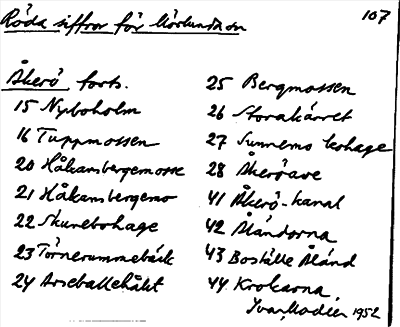 Röda siffror för Mörlundaån
107
Åkerö forts.
15 Nyboholm
16 Tuppmossen
20 Håkansbergemosse
21 Håkansbergemo
22 Skurebohage
23 Törnerummebäck
24 Arseballehålet
25 Bergmossen
26 Storakärret
27 Sunnemo kohage
28 Åkeröave
41 Åkerö-kanal
42 Åländorna
43 Boställe Åländ
44 Krokarna
Ivar Modéer 1952